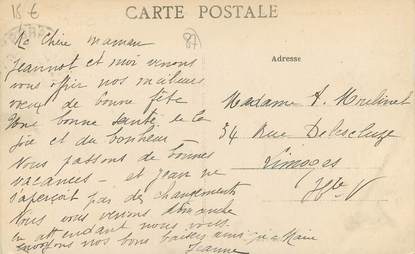 15 €
CARTE POSTALE
87
Adresse
Ma Chère maman
Jeannot et moi venons
vous offrir nos meilleurs
voeux de bonne fête
Bonne santé de la
joie et du bonheur —
Nous passons de bonnes
vacances — et Jean ne
s'aperçoit pas des changements
Nous vous verrons dimanche
en attendant nous vous
envoyons nos bons baisers ainsi qu'à
Jeanne
Madame A. Moulinet
34 Rue Delescluze
Limoges
Hte V